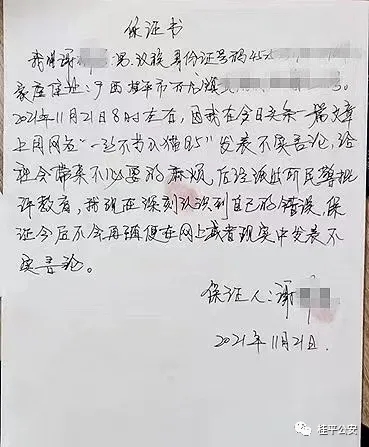 保证书
我叫谢 男.汉族身份证号码45
家庭住址:广西桂平市
2021年11月21日8时左右,因我在今日头条一篇文章
上用网名“一丝不苟 猫 ”发表不实言论,给
社会带来不必要的麻烦,后经派出所民警批
评教育,我现在深刻认识到自己的错误,保
证今后不会再随便在网上或者现实中发表不
实言论。
保证人:谢
2021年11月21日.
桂平公安